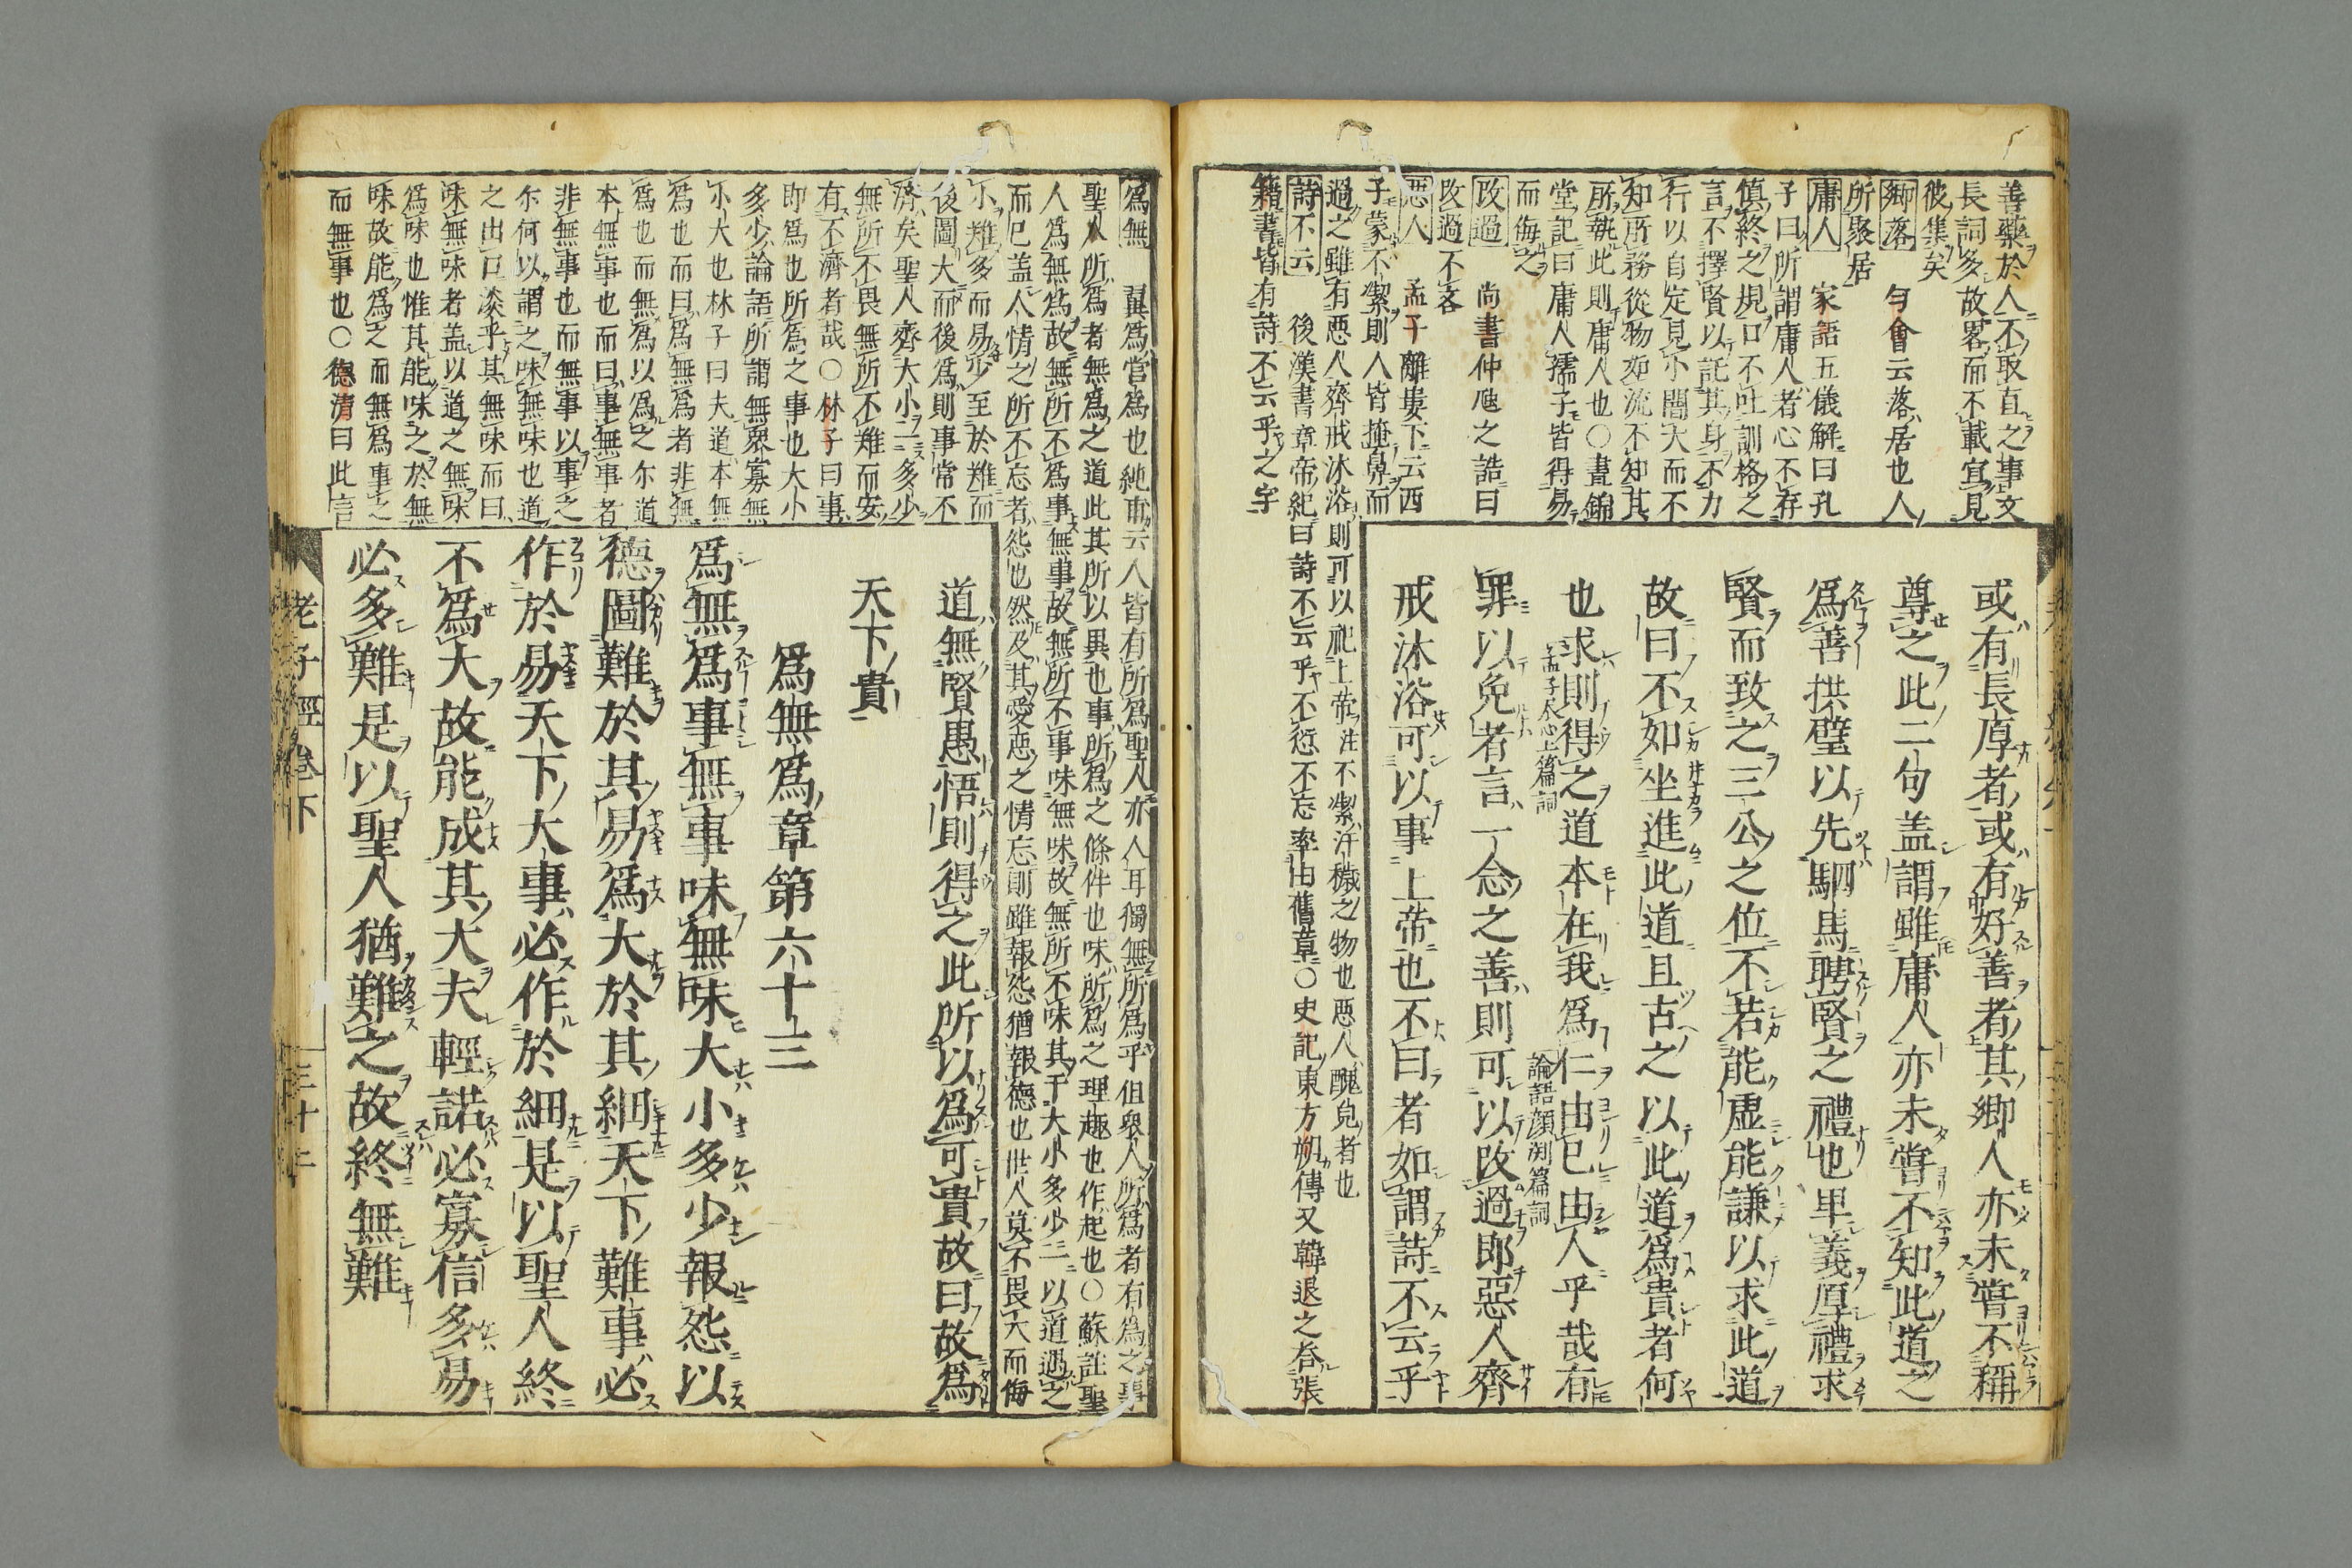 善藥於人不取直之事文
長詞多故畧而不載宜見
彼集矣
鄉落　匀會云落居也人
所聚居
庸人　家語五儀解曰孔
子曰所謂庸人者心不存
愼終之規口不吐訓格之
言不擇賢以託其身不力
行以自定見小闇大而不
知所務從物如流不知其
所執此則庸人也○書錦
堂記曰庸人孺子皆得易
而侮之
改過　尚書仲虺之誥曰
改過不吝
惡人　孟子離婁下云西
子蒙不潔則人皆掩鼻而
過之雖有惡人齊戒沐浴則可以祀上帝注不潔汙穢之物也惡人醜皃者也
詩不云　後漢書章帝紀曰詩不云乎不愆不忘率由舊章○史記東方朔傳又韓退之荅張
籍書皆有詩不云乎之字
或有長厚者或有好善者其鄉人亦未嘗不稱
尊之此二句盖謂雖庸人亦未嘗不知此道之
爲善拱璧以先駟馬聘賢之禮也卑義厚禮求
賢而致之三公之位不若能虛能謙以求此道
故曰不如坐進此道且古之以此道爲貴者何
也求則得之道本在我爲仁由已由人乎哉有
孟子尽心上篇詞
論語顔渕篇詞
罪以免者言一念之善則可以改過即惡人齊
戒沐浴可以事上帝也不曰者如謂詩不云乎
爲無　翼爲營爲也純甫云人皆有所爲聖人亦人耳獨無所爲乎但舉人所爲者有爲之事
聖人所爲者無爲之道此其所以異也事所爲之條件也味所爲之理趣也作起也○蘇註聖
人爲無爲故無所不爲事無事故無所不事味無味故無所不味其于大小多少二以道遇之
而已盖人情之所不忘者怨也然及其愛惡之情忘則雖報怨猶報德也世人莫不畏大而侮
小難多而易少至於難而
後圖大而後爲則事常不
濟矣聖人齊大小二多少
無所不畏無所不難而安
有不濟者哉○林子曰事
即爲也所爲之事也大小
多少論語所謂無衆寡無
小大也林子曰夫道本無
爲也而曰爲無爲者非無
爲也而無爲以爲之尔道
本無事也而曰事無事者
非無事也而無事以事之
尔何以謂之味無味也道
之出口淡乎其無味而曰
味無味者盖以道之無味
爲味也惟其能味之於無
味故能爲之而無爲事之
而無事也○德淸曰此言
道無賢愚悟則得之此所以爲可貴故曰故爲
天下貴
爲無爲章第六十三
爲無爲事無事味無味大小多少報怨以
德圖難於其易爲大於其細天下難事必
作於易天下大事必作於細是以聖人終
不爲大故能成其大夫輕諾必寡信多易
必多難是以聖人猶難之故終無難
老子經卷下
三十二